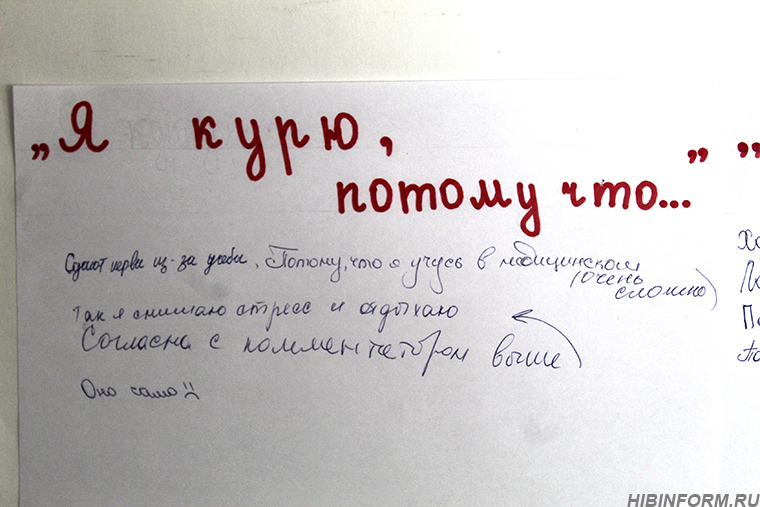 „Я курю,
потому что...”
Сдают нервы из-за учебы, Потому, что я учусь в медицинском
(очень
сложно)
Так я снимаю стресс и отдыхаю
Согласна с комментатором выше
Оно само
„
Хо
По
HIBINFORM.RU